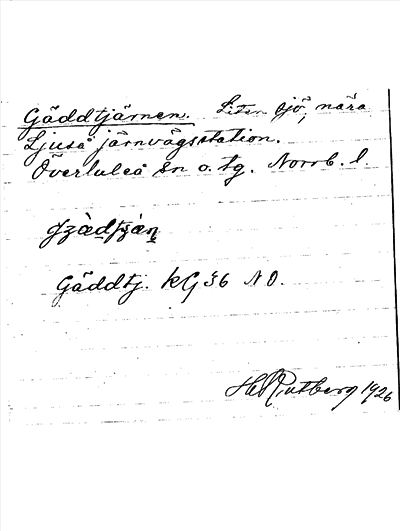 Gäddtjärnen. Liten sjö, nära
Ljuså järnvägsstation.
Överluleå sn o. tg. Norrb. l.
Gäddtj. kG 36 NO.
H Rutberg 1926